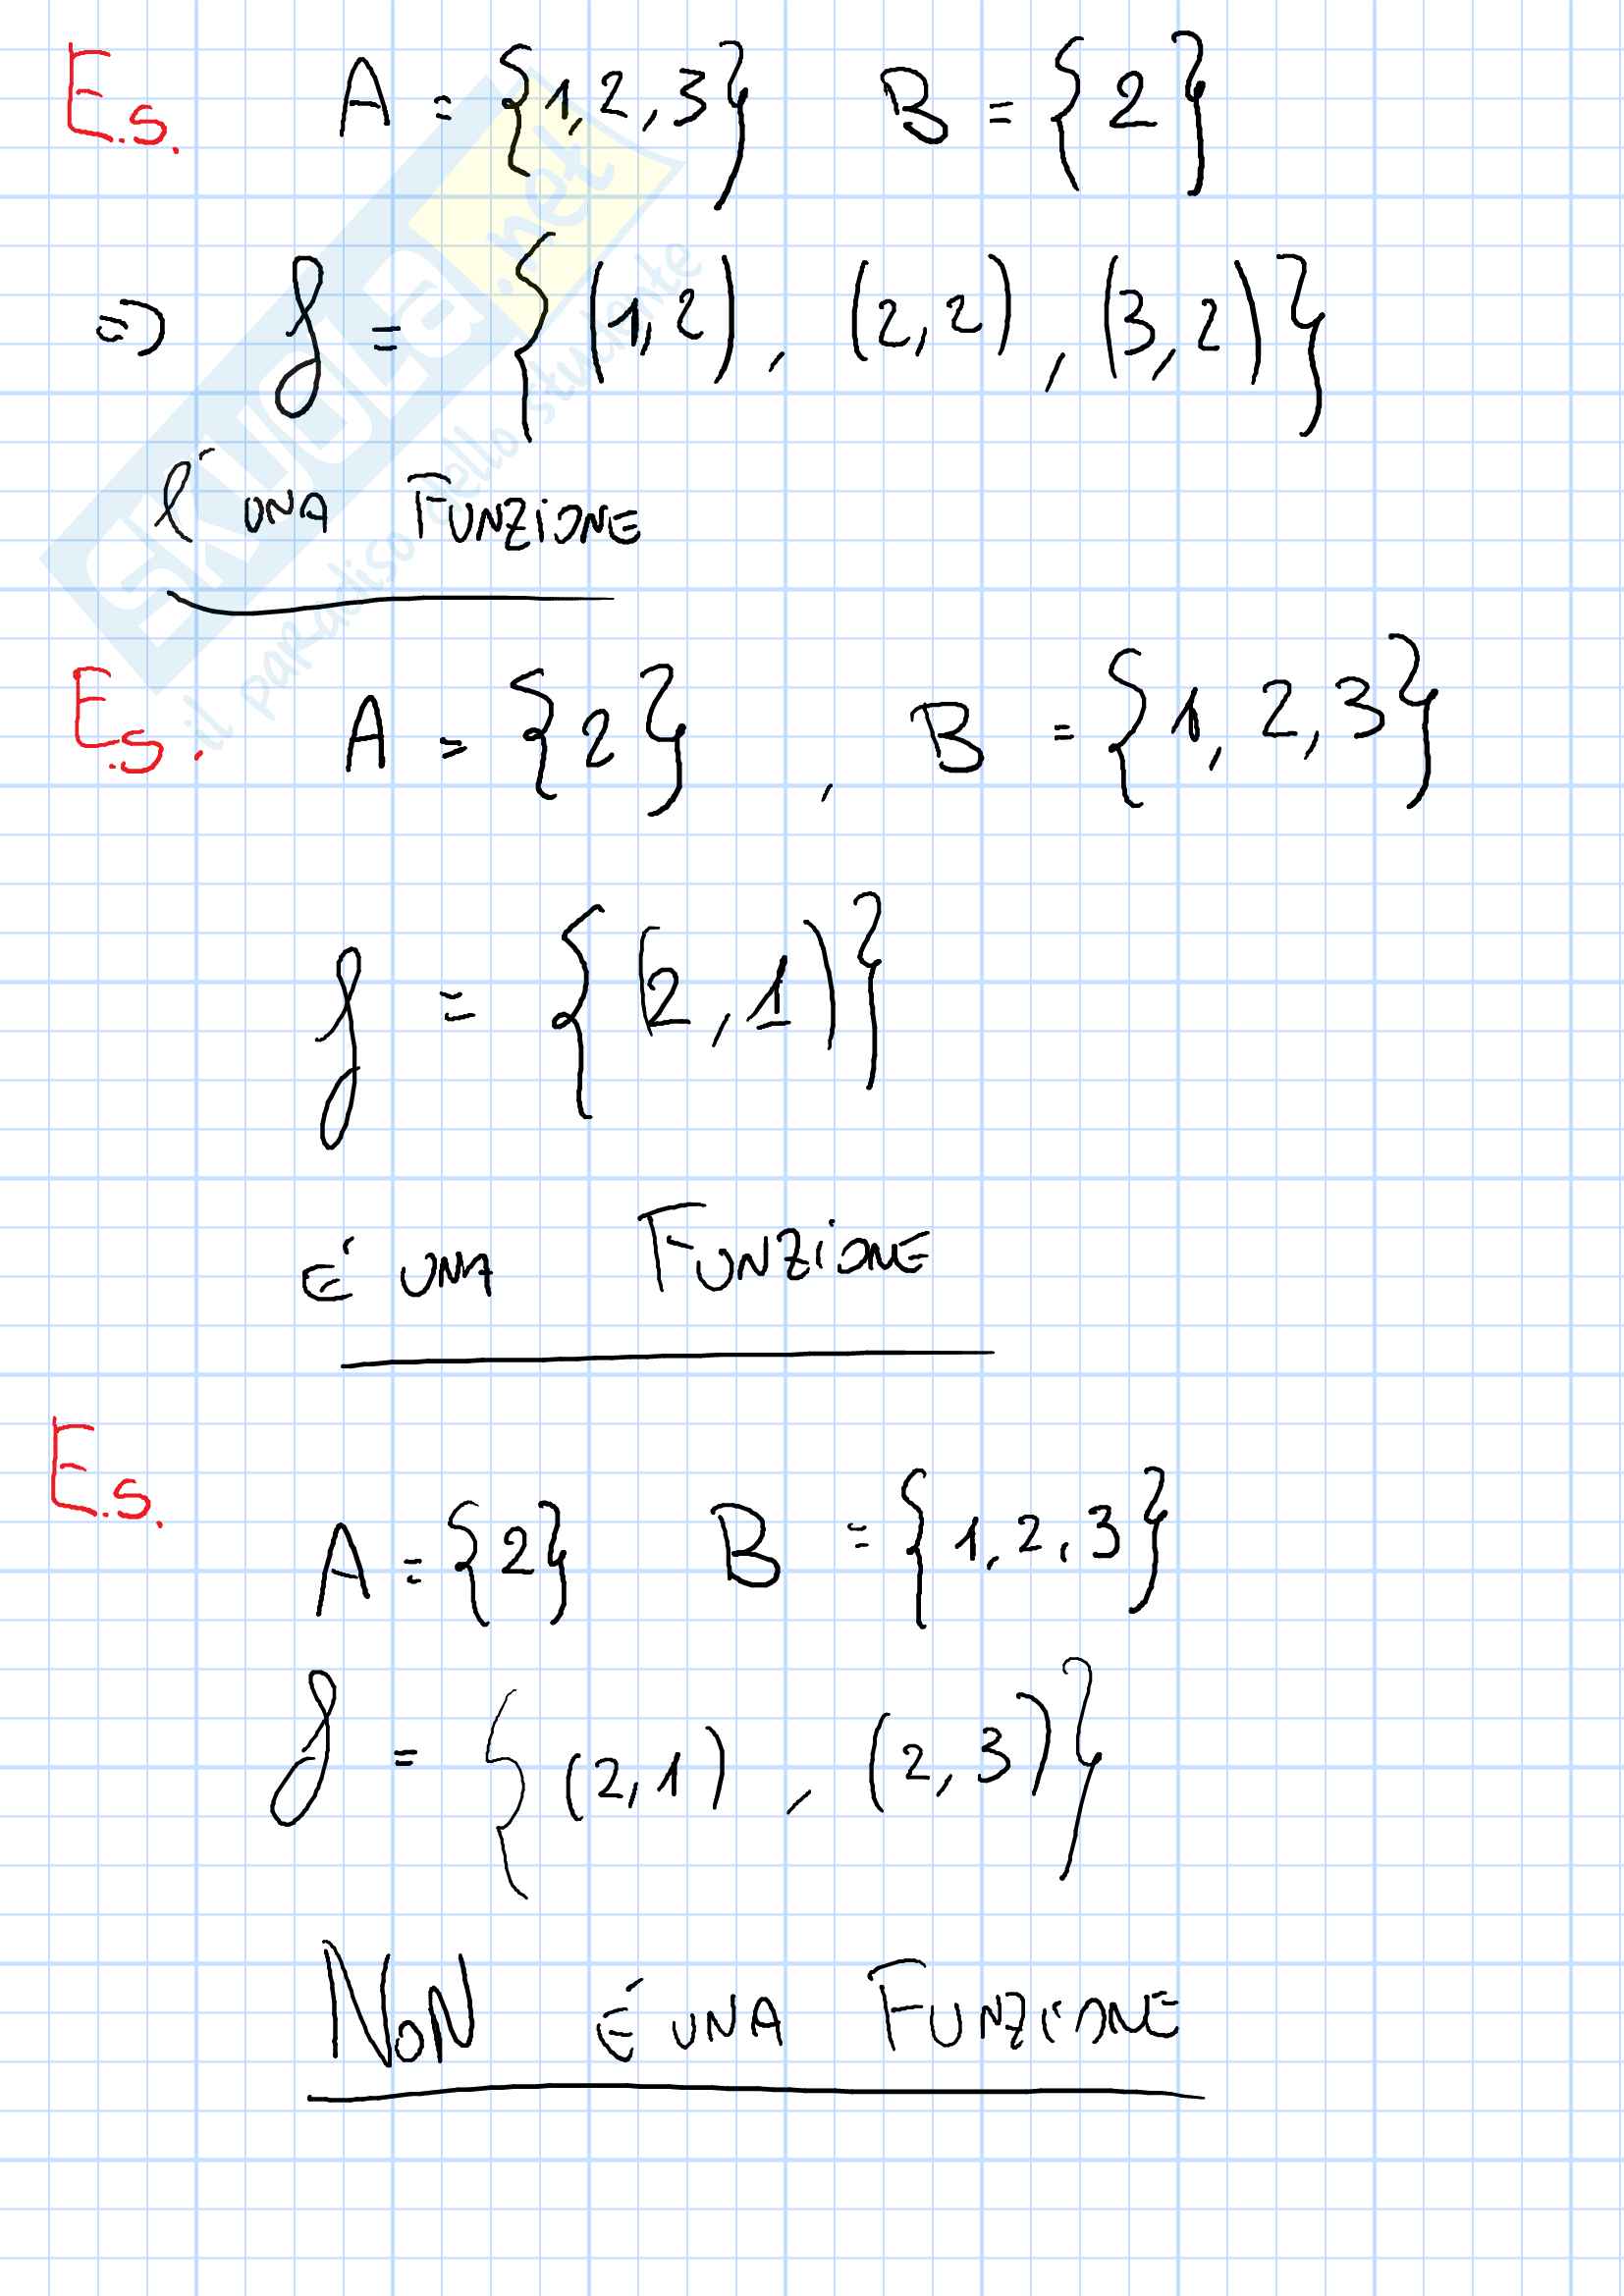 Es. A = {1,2,3} B = {2}
=> f = { (1,2) , (2,2) , (3,2) }
É UNA FUNZIONE
Es. A = {2} , B = {1, 2, 3}
f = { (2,1) }
É UNA FUNZIONE
Es.
A = {2} B = {1,2,3}
f = { (2,1) , (2,3) }
NON É UNA FUNZIONE
SKUOLA.net
il paradiso dello studente